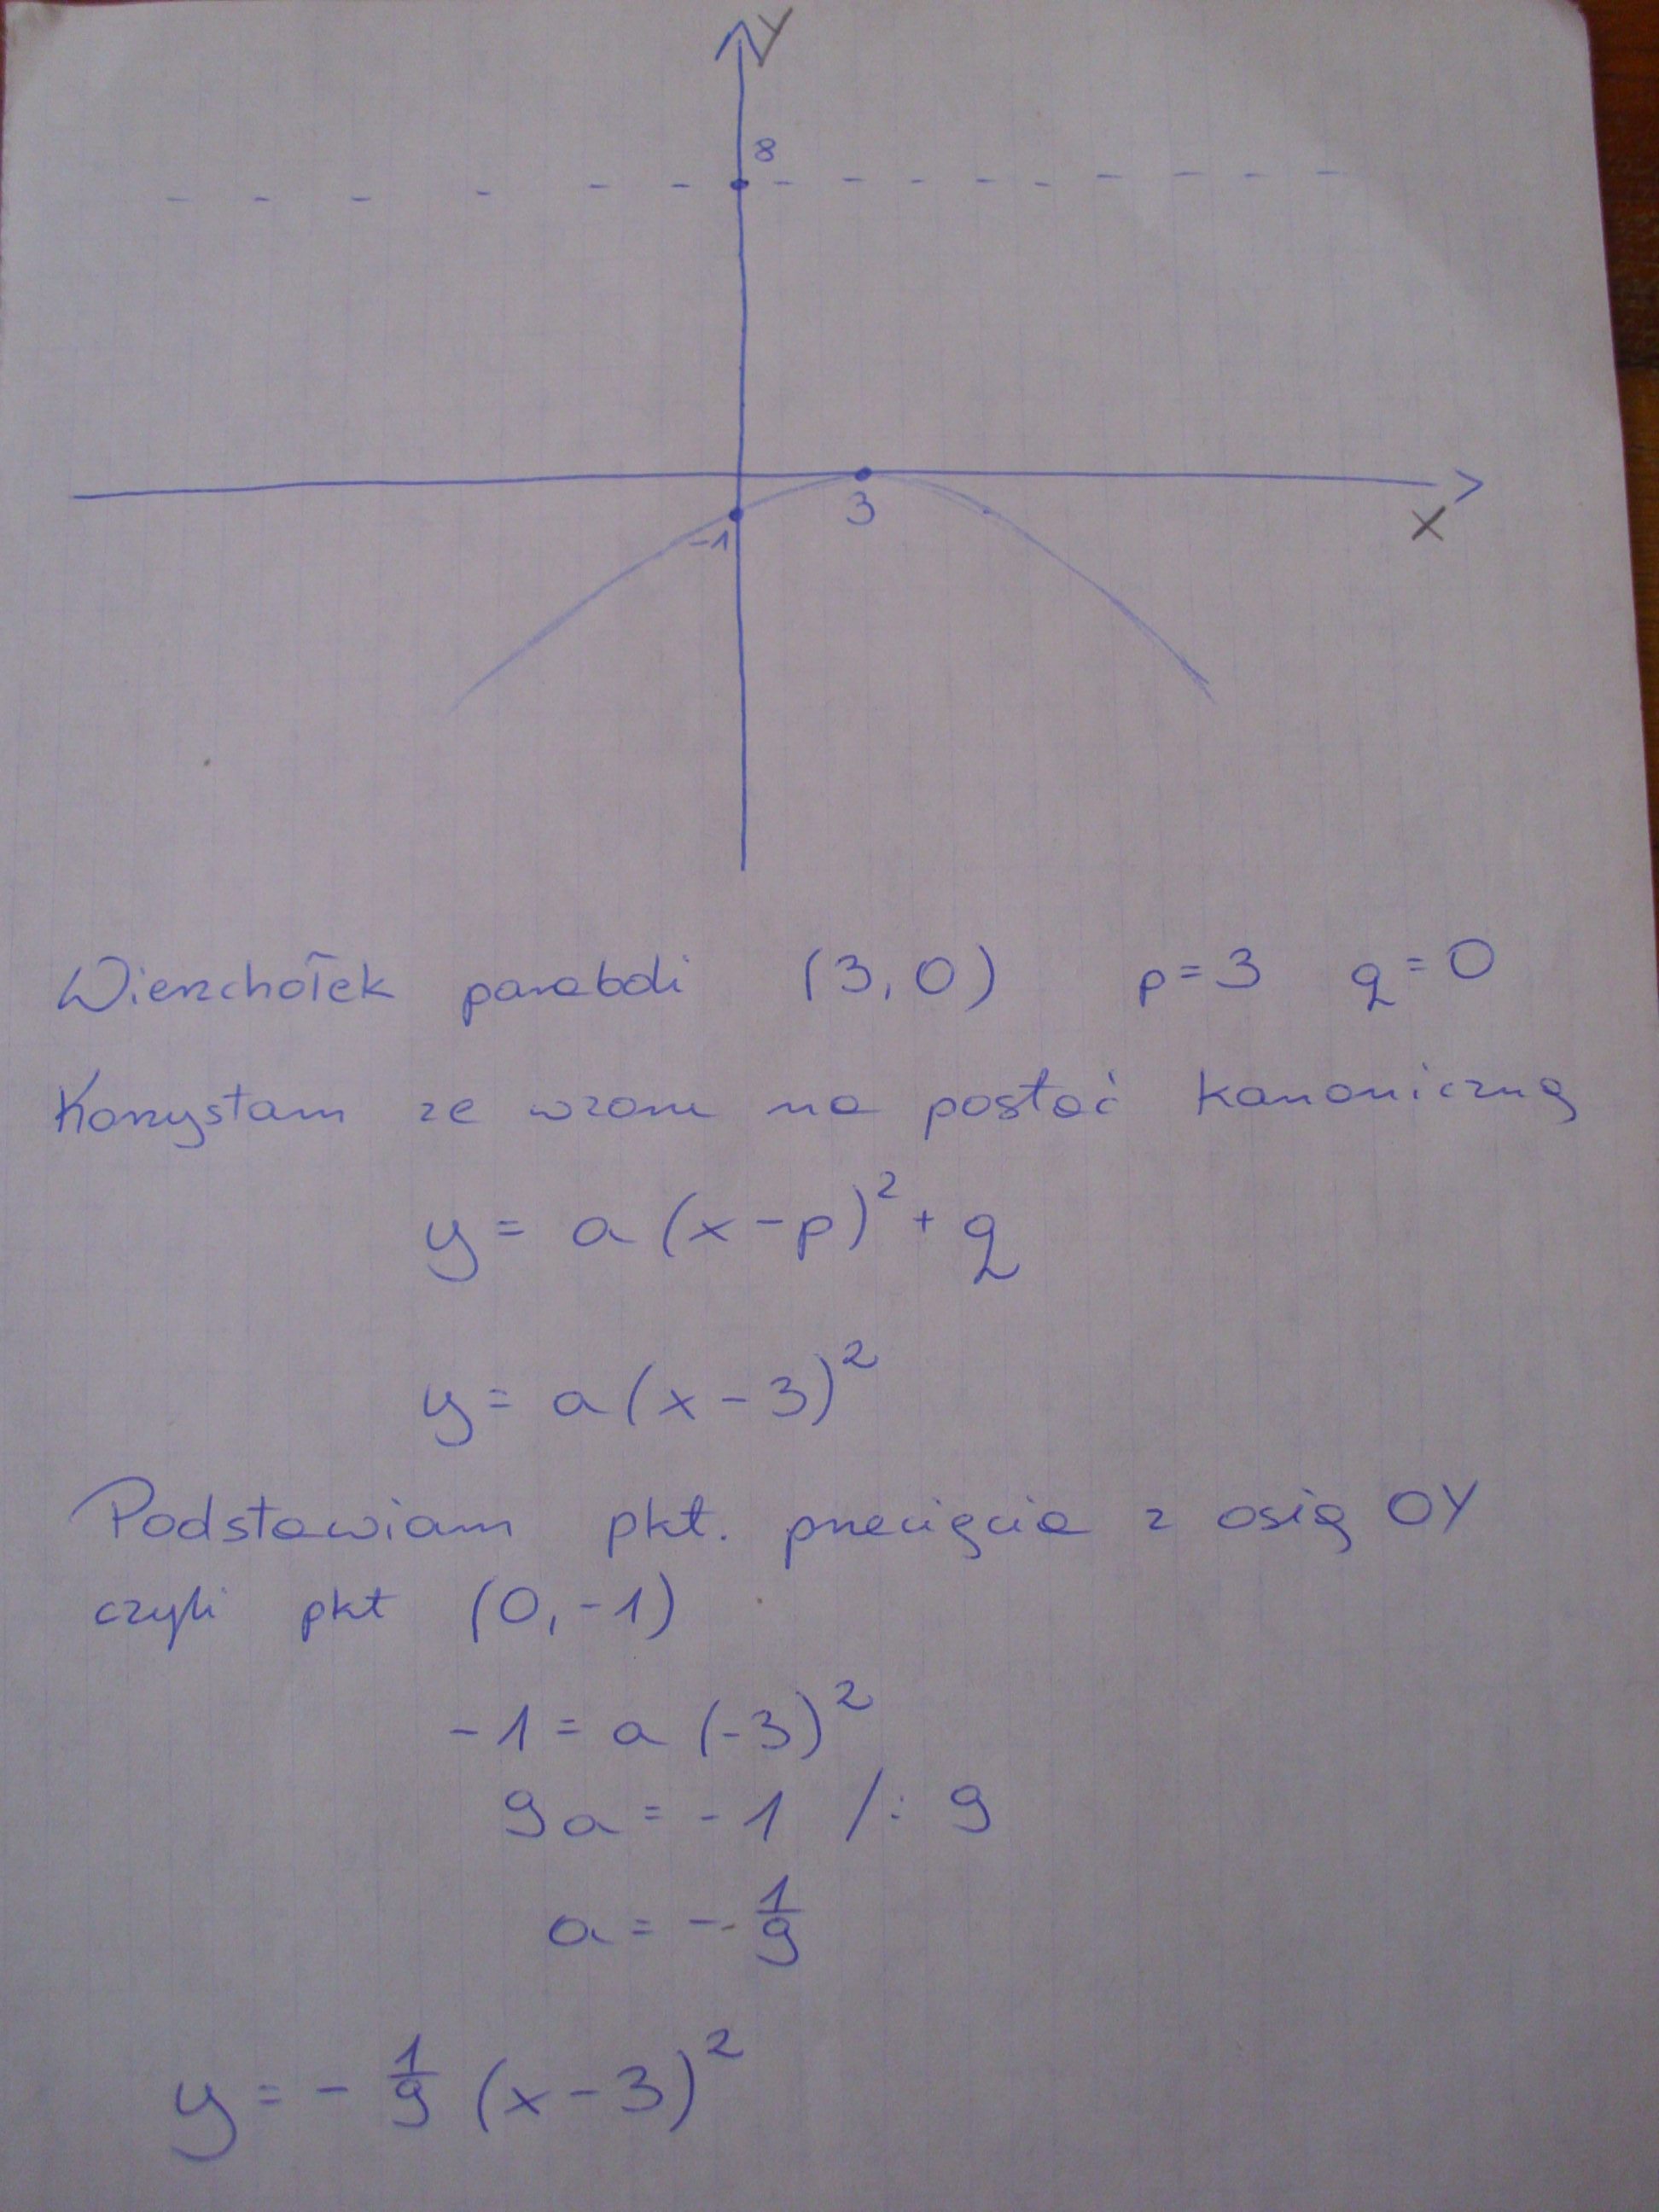 Y
8
3
-1
X
Wierzchołek paraboli (3,0) p=3 q=0
Korzystam ze wzoru na postać kanoniczną
y = a(x-p)² + q
y = a(x-3)²
Podstawiam pkt. przecięcia z osią OY
czyli pkt (0,-1)
-1 = a (-3)²
9a = -1 /: 9
a = - 1/9
y = - 1/9 (x-3)²